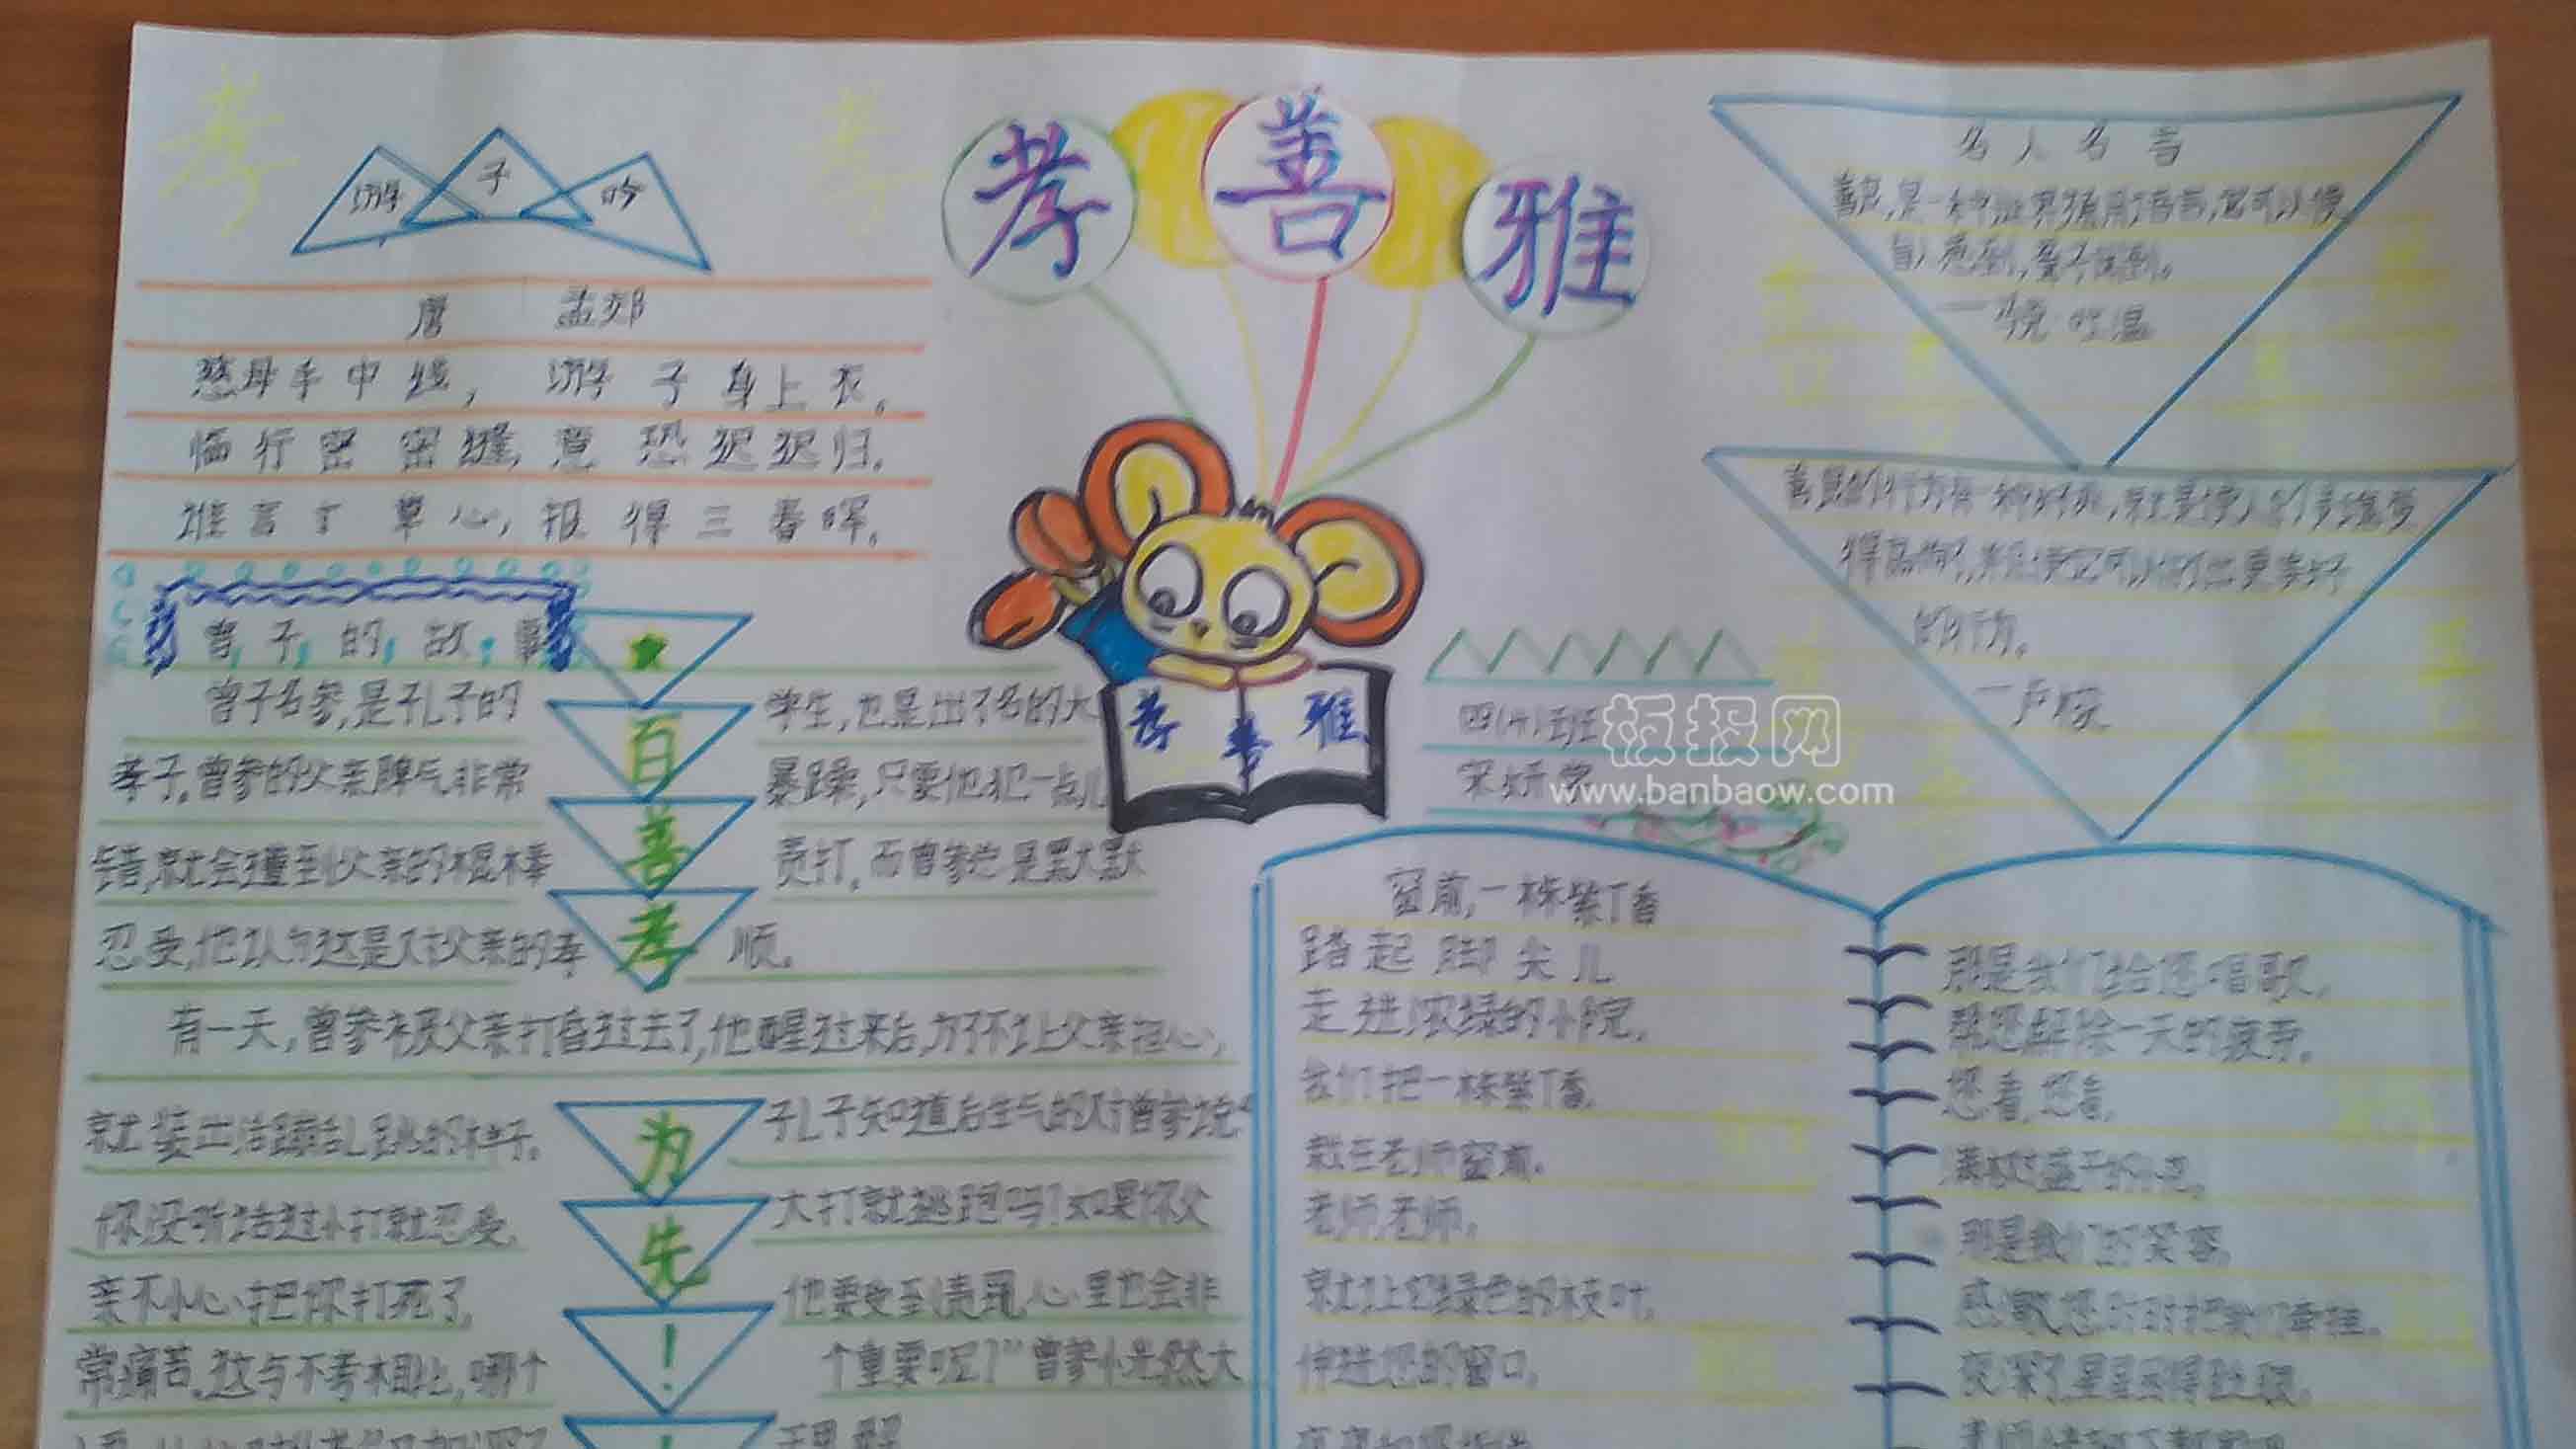 孝善雅
游子吟
唐 孟郊
慈母手中线，游子身上衣。
临行密密缝，意恐迟迟归。
谁言寸草心，报得三春晖。
曾子的故事
曾子名参，是孔子的学生，也是出了名的大
孝子。曾参的父亲脾气非常暴躁，只要他犯一点儿
错，就会遭到父亲的棍棒责打，而曾参总是默默
忍受，他认为这是对父亲的孝顺。
有一天，曾参被父亲打昏过去了，他醒过来后，为了不让父亲担心，
就装出活蹦乱跳的样子。孔子知道后生气的对曾参说“
你没听说过小打就忍受，大打就逃跑吗？如果你父
亲不小心把你打死了，他要受到责罚，心里也会非
常痛苦，这与不孝相比，哪个个重要呢？”曾参恍然大
百善孝为先！
孝善雅
四（小）班
名人名言
善良，是一种世界通用的语言，它可以使
盲人感到，聋子闻到。
—马克 吐温
的行为。
—卢梭
窗前，一株紫丁香
踏起脚尖儿
走进浓绿的小院，
我们把一株紫丁香，
栽在老师窗前。
老师，老师，
就让它绿色的枝叶，
伸进您的窗口，
那是我们给您唱歌，
帮您解除一天的疲劳。
您看，您看，
满树盛开的小花，
那是我们的笑容，
感谢您时时把我们牵挂。
夜深了，星星困得眨眼，
板报网
www.banbaow.com